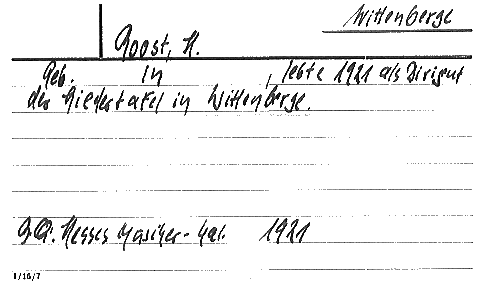 Wittenberge
Roost, H.
Geb. in , lebte 1921 als Dirigent
der Liedertafel in Wittenberge.
Hesses Musiker-Kal. 1921
1/16/7